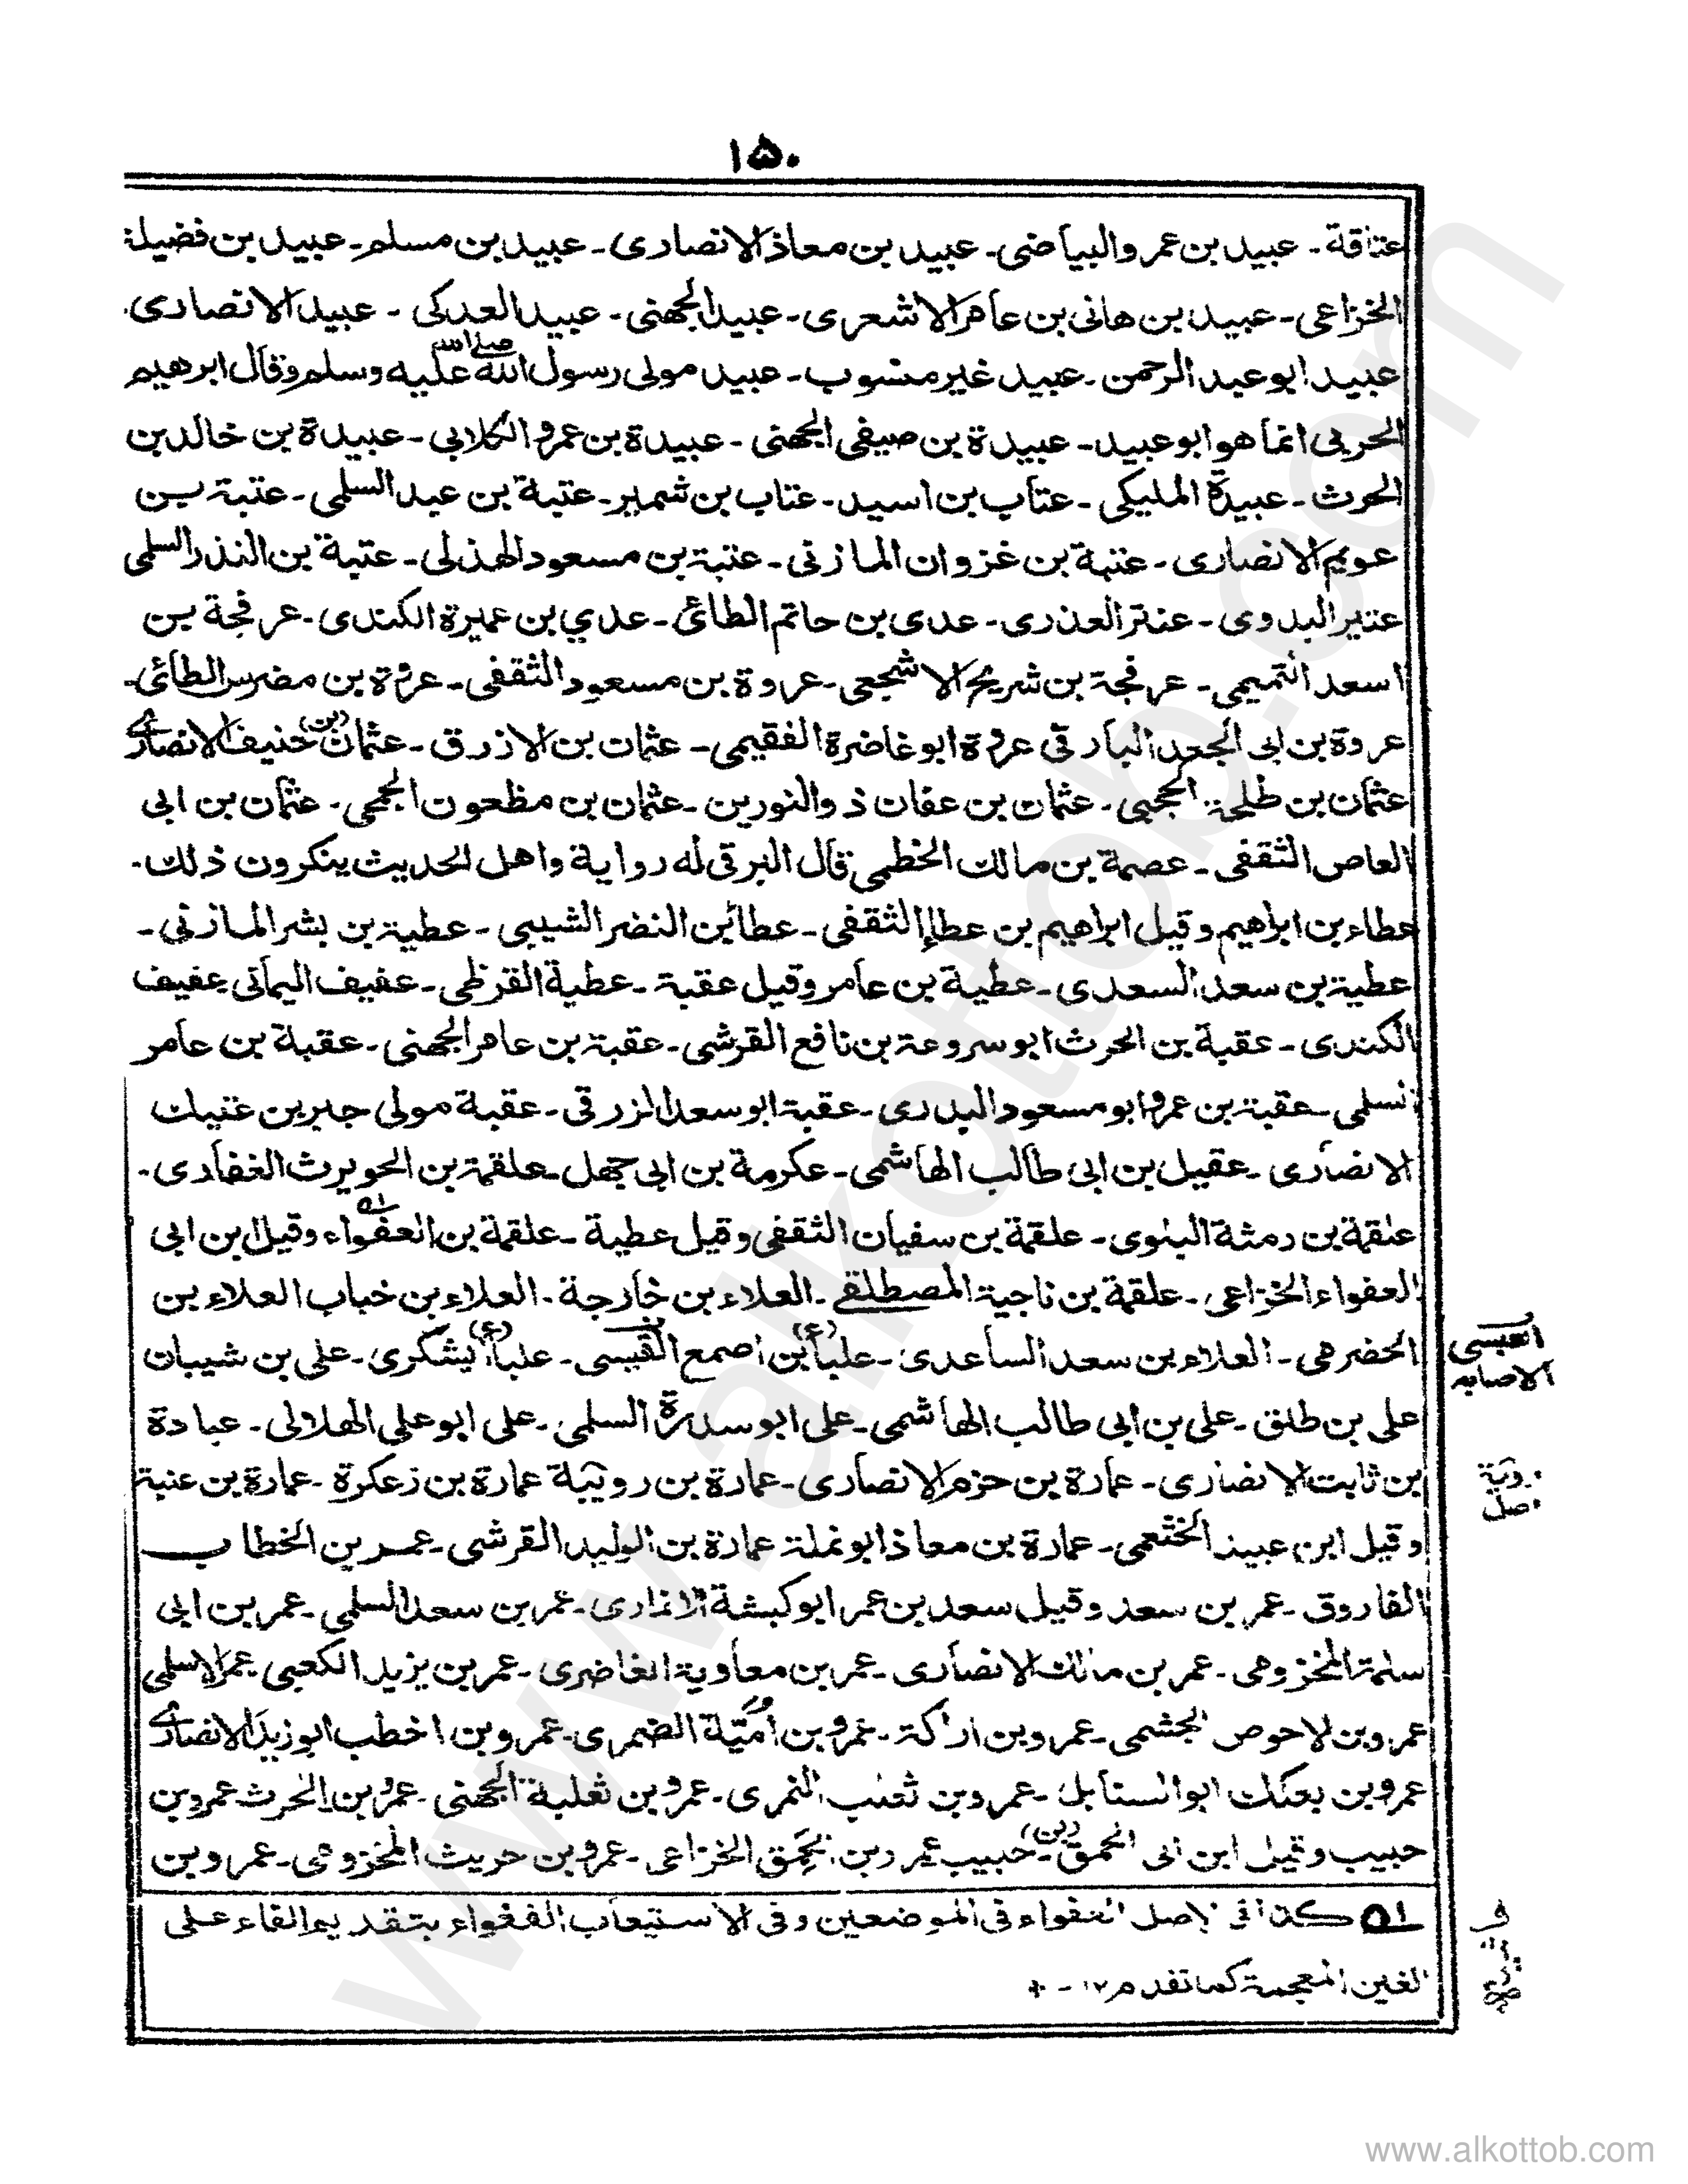 ١٥٠
عتاقة ـ عبيد بن عمرو البياضى ـ عبيد بن معاذ الانصارى ـ عبيد بن مسلم ـ عبيد بن فضيلة
الخزاعى ـ عبيد بن هانى بن عامر الاشعرى ـ عبيد الجهنى ـ عبيد العدكى ـ عبيد الانصارى
عبيد ابو عبد الرحمن ـ عبيد غير منسوب ـ عبيد مولى رسول الله صلى الله عليه وسلم وقال ابرهيم
الحربى انما هو ابو عبيد ـ عبيدة بن صيفى الجهنى ـ عبيدة بن عمرو الكلابى ـ عبيدة بن خالد بن
الحرث ـ عبيدة المليكى ـ عتاب بن اسيد ـ عتاب بن شمير ـ عتبة بن عبد السلمى ـ عتبة بن
عويم الانصارى ـ عتبة بن غزوان المازنى ـ عتبة بن مسعود الهذلى ـ عتبة بن الندر السلمى
عتير البدوى ـ عنتر العذرى ـ عدى بن حاتم الطائى ـ عدي بن عميرة الكندى ـ عرفجة بن
اسعد التميمى ـ عرفجة بن شريح الاشجعى ـ عروة بن مسعود الثقفى ـ عروة بن مضرس الطائى ـ
عروة بن ابى الجعد البارقى عروة ابو غاضرة الفقيمى ـ عثمان بن الازرق ـ عثمان (بن) حنيف الانصارى
عثمان بن طلحة الحجبى ـ عثمان بن عفان ذو النورين ـ عثمان بن مظعون الجمحى ـ عثمان بن ابى
العاص الثقفى ـ عصمة بن مالك الخطمى قال البرقى له رواية واهل الحديث ينكرون ذلك ـ
عطاء بن ابراهيم وقيل ابراهيم بن عطاء الثقفى ـ عطا بن النضر الشيبى ـ عطية بن بشر المازنى ـ
عطية بن سعد السعدى ـ عطية بن عامر وقيل عقبة ـ عطية القرظى ـ عفيف اليمانى عفيف
الكندى ـ عقبة بن الحرث ابو سروعة بن نافع القرشى ـ عقبة بن عامر الجهنى ـ عقبة بن عامر
السلمى ـ عقبة بن عمرو ابو مسعود البدرى ـ عقبة ابو سعد الزرقى ـ عقبة مولى جبر بن عتيك
الانصارى ـ عقيل بن ابى طالب الهاشمى ـ عكرمة بن ابى جهل ـ علقمة بن الحويرث الغفارى ـ
علقمة بن رمثة البلوى ـ علقمة بن سفيان الثقفى وقيل عطية ـ علقمة بن العفواء ٥١ وقيل ابن ابى
العفواء الخزاعى ـ علقمة بن ناجية المصطلقى ـ العلاء بن خارجة ـ العلاء بن خباب العلاء بن
الحضرمى ـ العلاء بن سعد الساعدى ـ علبا (ء) بن اصمع القيسى ـ علبا (ء) اليشكرى ـ على بن شيبان
العبسى
الاصابه
على بن طلق ـ على بن ابى طالب الهاشمى ـ على ابو سدرة السلمى ـ على ابو على الهلالى ـ عبادة
بن ثابت الانصارى ـ عمارة بن حزم الانصارى ـ عمارة بن رويبة عمارة بن زعكرة ـ عمارة بن عنبة
وقيل ابن عبيد الخثعمى ـ عمارة بن معاذ ابو نملة عمارة بن الوليد القرشى ـ عمر بن الخطاب
الفاروق ـ عمر بن سعد وقيل سعد بن عمر ابو كبشة الانمارى ـ عمر بن سعد السلمى ـ عمر بن ابى
سلمة المخزومى ـ عمر بن مالك الانصارى ـ عمر بن معاوية الغاضرى ـ عمر بن يزيد الكعبى ـ عمر الاسلمى
عمرو بن لاحوص الجشمى ـ عمرو بن اراكة ـ عمرو بن أميّة الضمرى ـ عمرو بن اخطب ابو زيد الانصارى
عمرو بن بعكك ابو السنابل ـ عمرو بن تغلب النمرى ـ عمرو بن ثعلبة الجهنى ـ عمرو بن الحرث عمرو بن
حبيب وقيل ابن ابى الحمق ـ (بن) حبيب عمرو بن الحمق الخزاعى ـ عمرو بن حريث المخزومى ـ عمرو بن
٥١ كذا فى الاصل العفواء فى الموضعين وفى الاستيعاب الفغواء بتقديم الفاء على
الغين المعجمة كما تقدم ١٢ ـ
www.alkottob.com